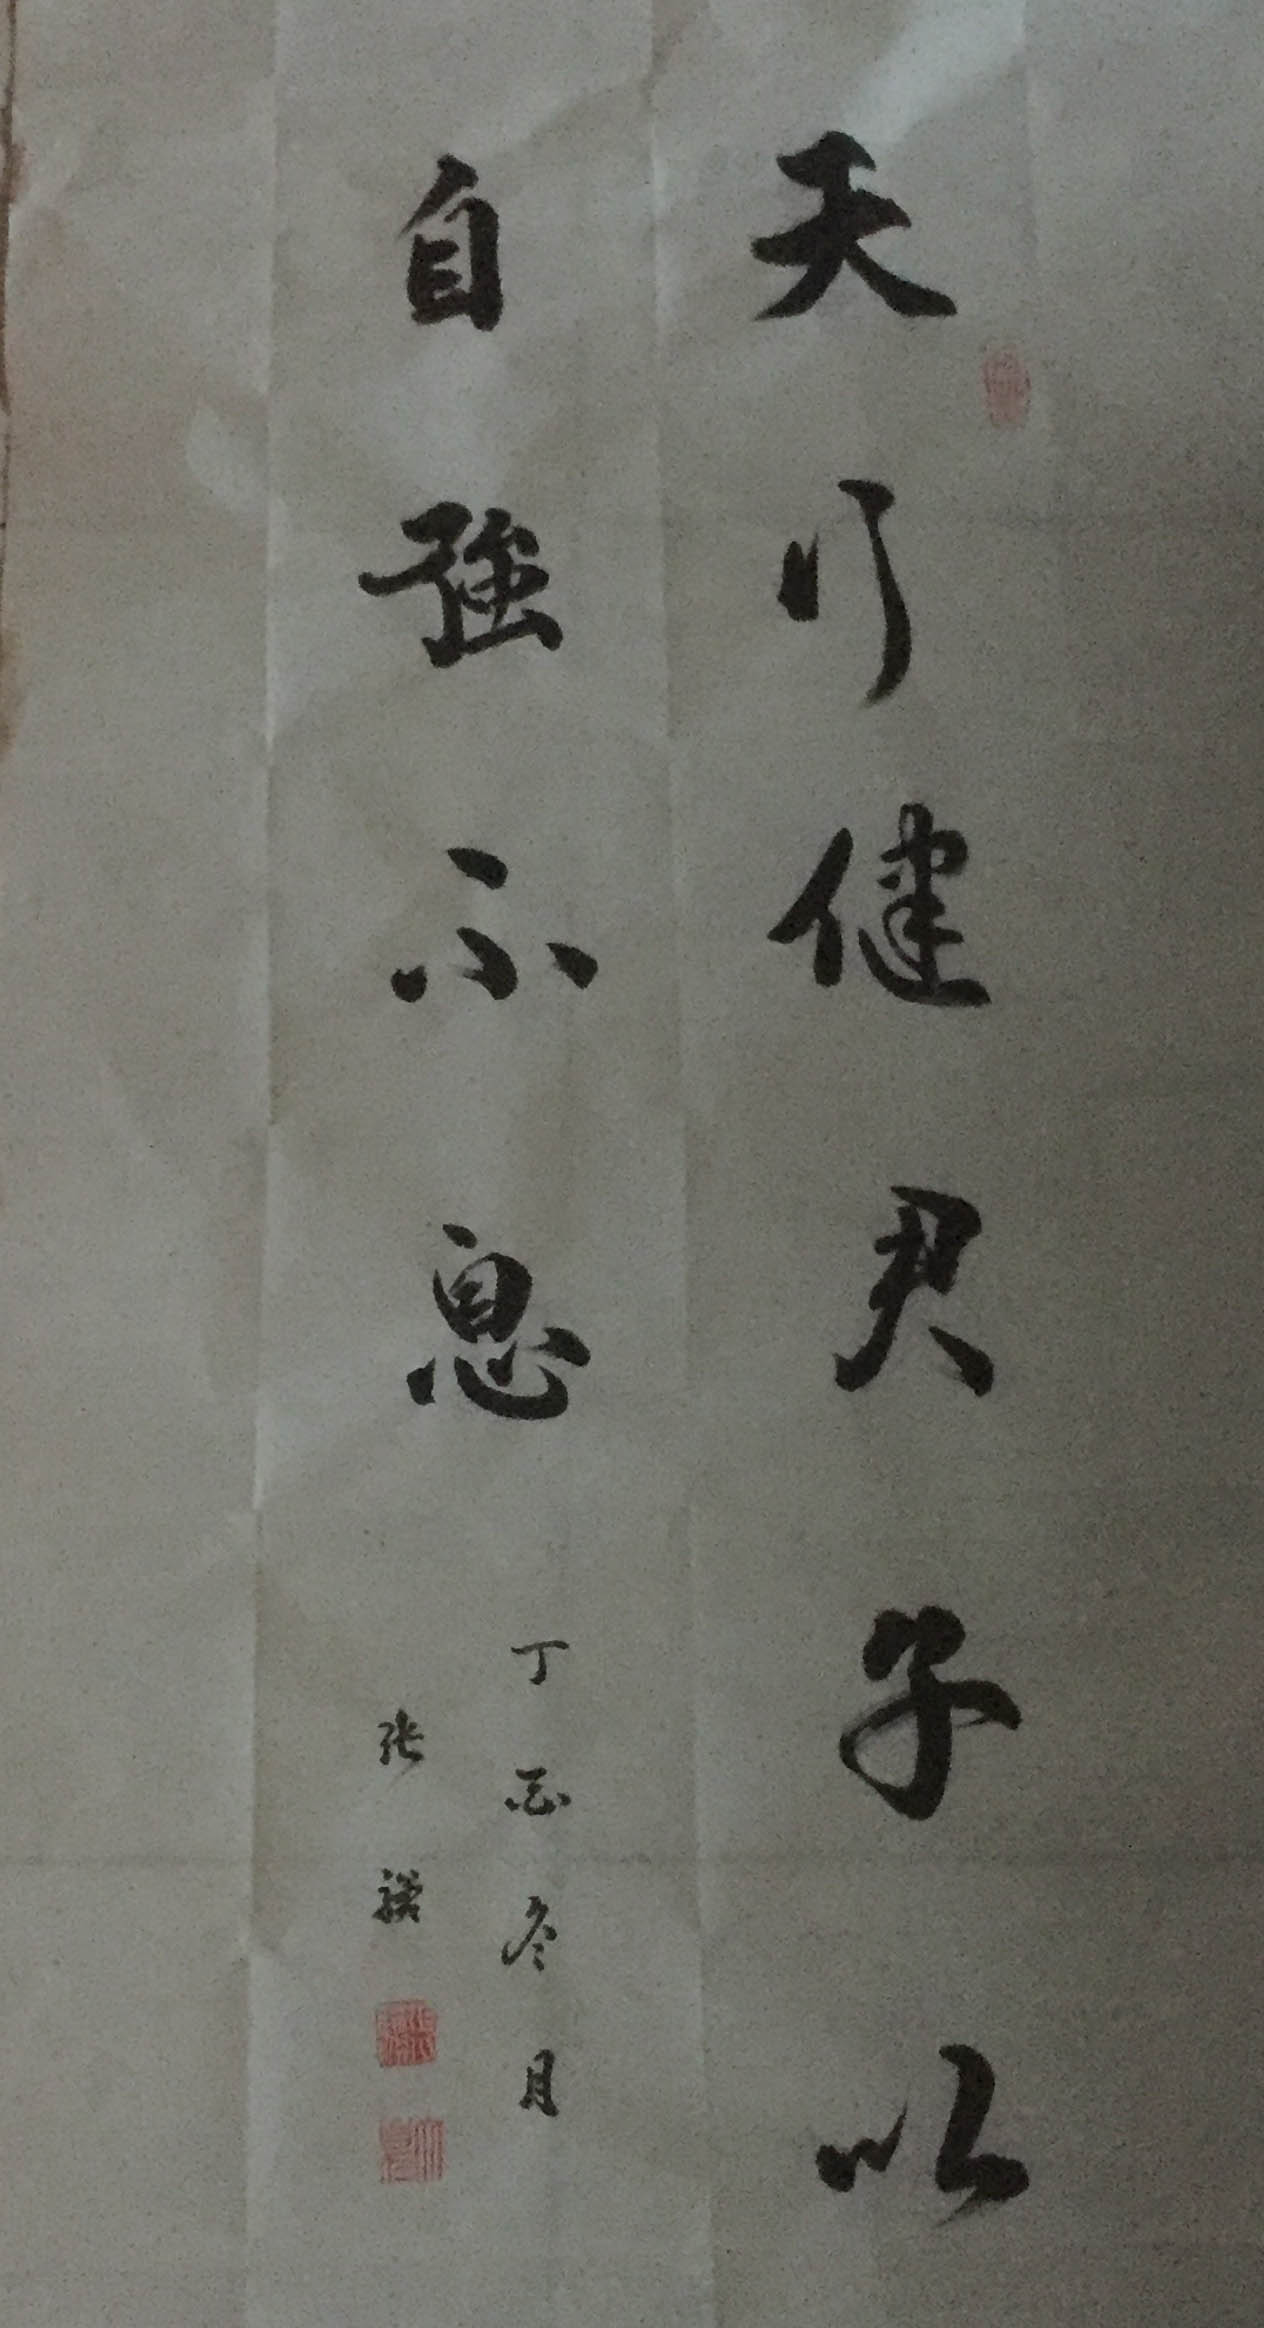 天行健君子以
自強不息
丁酉冬月
张